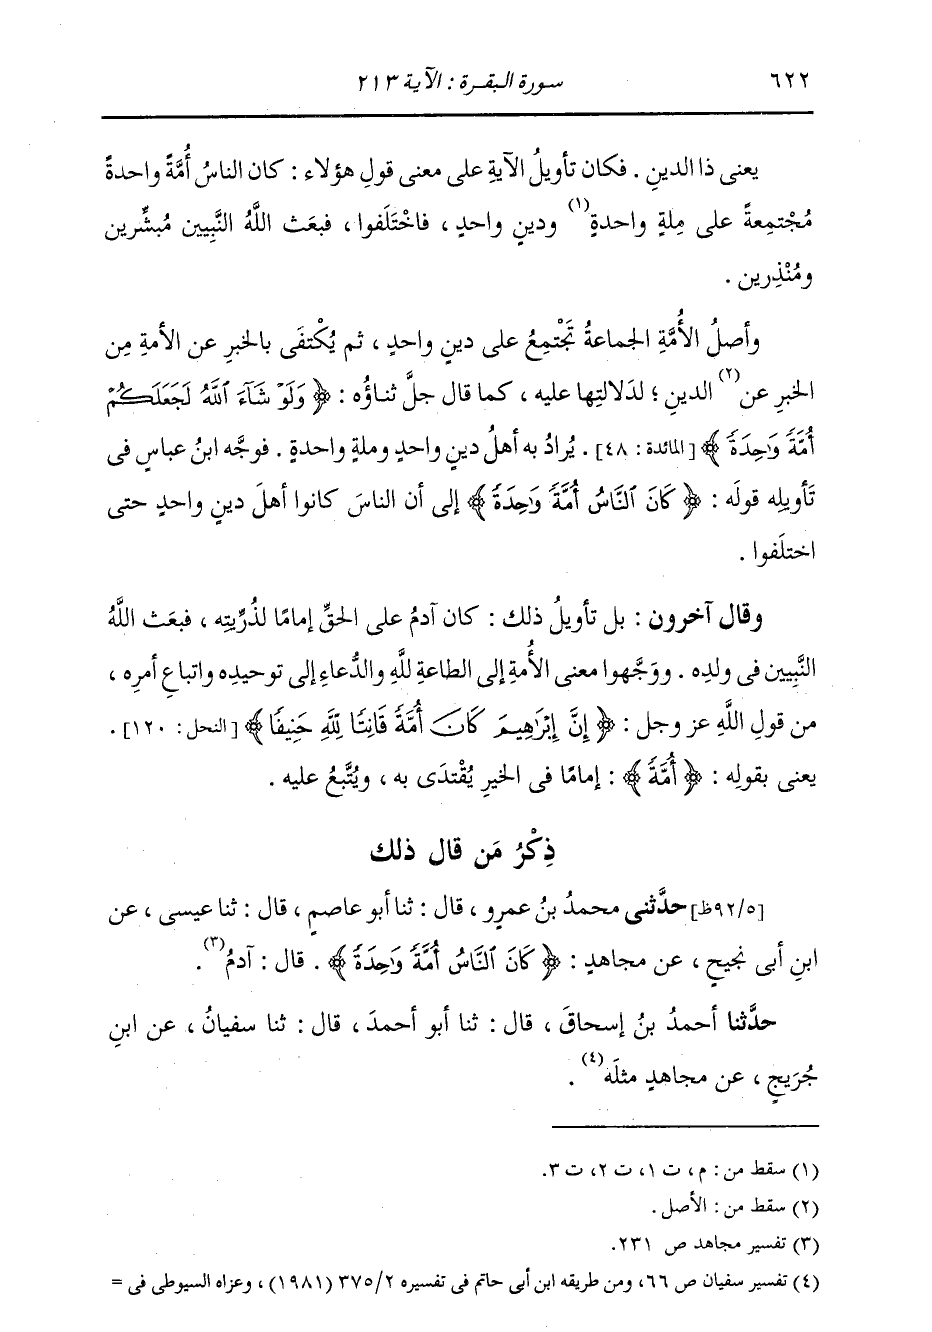 ٦٢٢ سورة البقرة : الآية ٢١٣
يعنى ذا الدينِ . فكان تأويلُ الآيةِ على معنى قولِ هؤلاء : كان الناسُ أُمَّةً واحدةً
مُجْتمِعةً على مِلةٍ واحدةٍ(١) ودينٍ واحدٍ ، فاخْتَلَفوا ، فبعَث اللَّهُ النَّبِيين مُبشِّرين
ومُنْذِرين .
وأصلُ الأُمَّةِ الجماعةُ تَجْتمِعُ على دينٍ واحدٍ ، ثم يُكْتفَى بالخبرِ عن الأمةِ مِن
الخبرِ عن(٢) الدينِ ؛ لدَلالتِها عليه ، كما قال جلَّ ثناؤُه : ﴿ وَلَوْ شَآءَ ٱللَّهُ لَجَعَلَكُمْ
أُمَّةً وَٰحِدَةً ﴾ [المائدة : ٤٨] . يُرادُ به أهلُ دينٍ واحدٍ وملةٍ واحدةٍ . فوجَّه ابنُ عباسٍ فى
تَأويلِه قولَه : ﴿ كَانَ ٱلنَّاسُ أُمَّةً وَٰحِدَةً ﴾ إلى أن الناسَ كانوا أهلَ دينٍ واحدٍ حتى
اختلَفوا .
وقال آخرون : بل تأويلُ ذلك : كان آدمُ على الحقِّ إمامًا لذُرِّيتِه ، فبعَث اللَّهُ
النَّبِيين فى ولدِه . ووَجَّهوا معنى الأُمةِ إلى الطاعةِ للَّهِ والدُّعاءِ إلى توحيدِه واتباعِ أمرِه ،
من قولِ اللَّهِ عز وجل : ﴿ إِنَّ إِبْرَٰهِيمَ كَانَ أُمَّةً قَانِتًا لِلَّهِ حَنِيفًا ﴾ [النحل : ١٢٠] .
يعنى بقولِه : ﴿ أُمَّةً ﴾ : إمامًا فى الخيرِ يُقْتدَى به ، ويُتَّبعُ عليه .
ذِكْرُ مَن قال ذلك
[٩٢/٥ظ] حدَّثنى محمدُ بنُ عمرٍو ، قال : ثنا أبو عاصمٍ ، قال : ثنا عيسى ، عن
ابنِ أبى نجيحٍ ، عن مجاهدٍ : ﴿ كَانَ ٱلنَّاسُ أُمَّةً وَٰحِدَةً ﴾ . قال : آدمُ(٣) .
حدَّثنا أحمدُ بنُ إسحاقَ ، قال : ثنا أبو أحمدَ ، قال : ثنا سفيانُ ، عن ابنِ
جُرَيجٍ ، عن مجاهدٍ مثلَه(٤) .
(١) سقط من : م ، ت ١ ، ت ٢ ، ت ٣ .
(٢) سقط من : الأصل .
(٣) تفسير مجاهد ص ٢٣١ .
(٤) تفسير سفيان ص ٦٦ ، ومن طريقه ابن أبى حاتم فى تفسيره ٣٧٥/٢ (١٩٨١) ، وعزاه السيوطى فى =